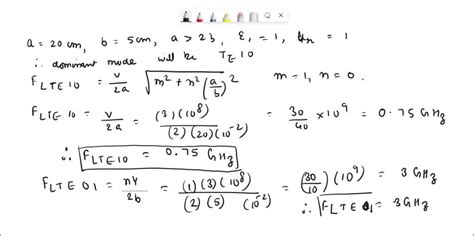 a = 20 cm, b = 5cm, a > 2b, εr = 1, μr = 1
∴ dominant mode will be TE10
FLTE10 = v/2a √(m² + n² (a/b)²) m = 1, n = 0.
FLTE10 = v/2a = (3)(10⁸)/(2)(20)(10⁻²) = 30/40 × 10⁹ = 0.75 GHz
∴ FLTE10 = 0.75 GHz
FLTE01 = nv/2b = (1)(3)(10⁸)/(2)(5)(10⁻²) = (30/10)(10⁹) = 3 GHz
∴ FLTE01 = 3GHz